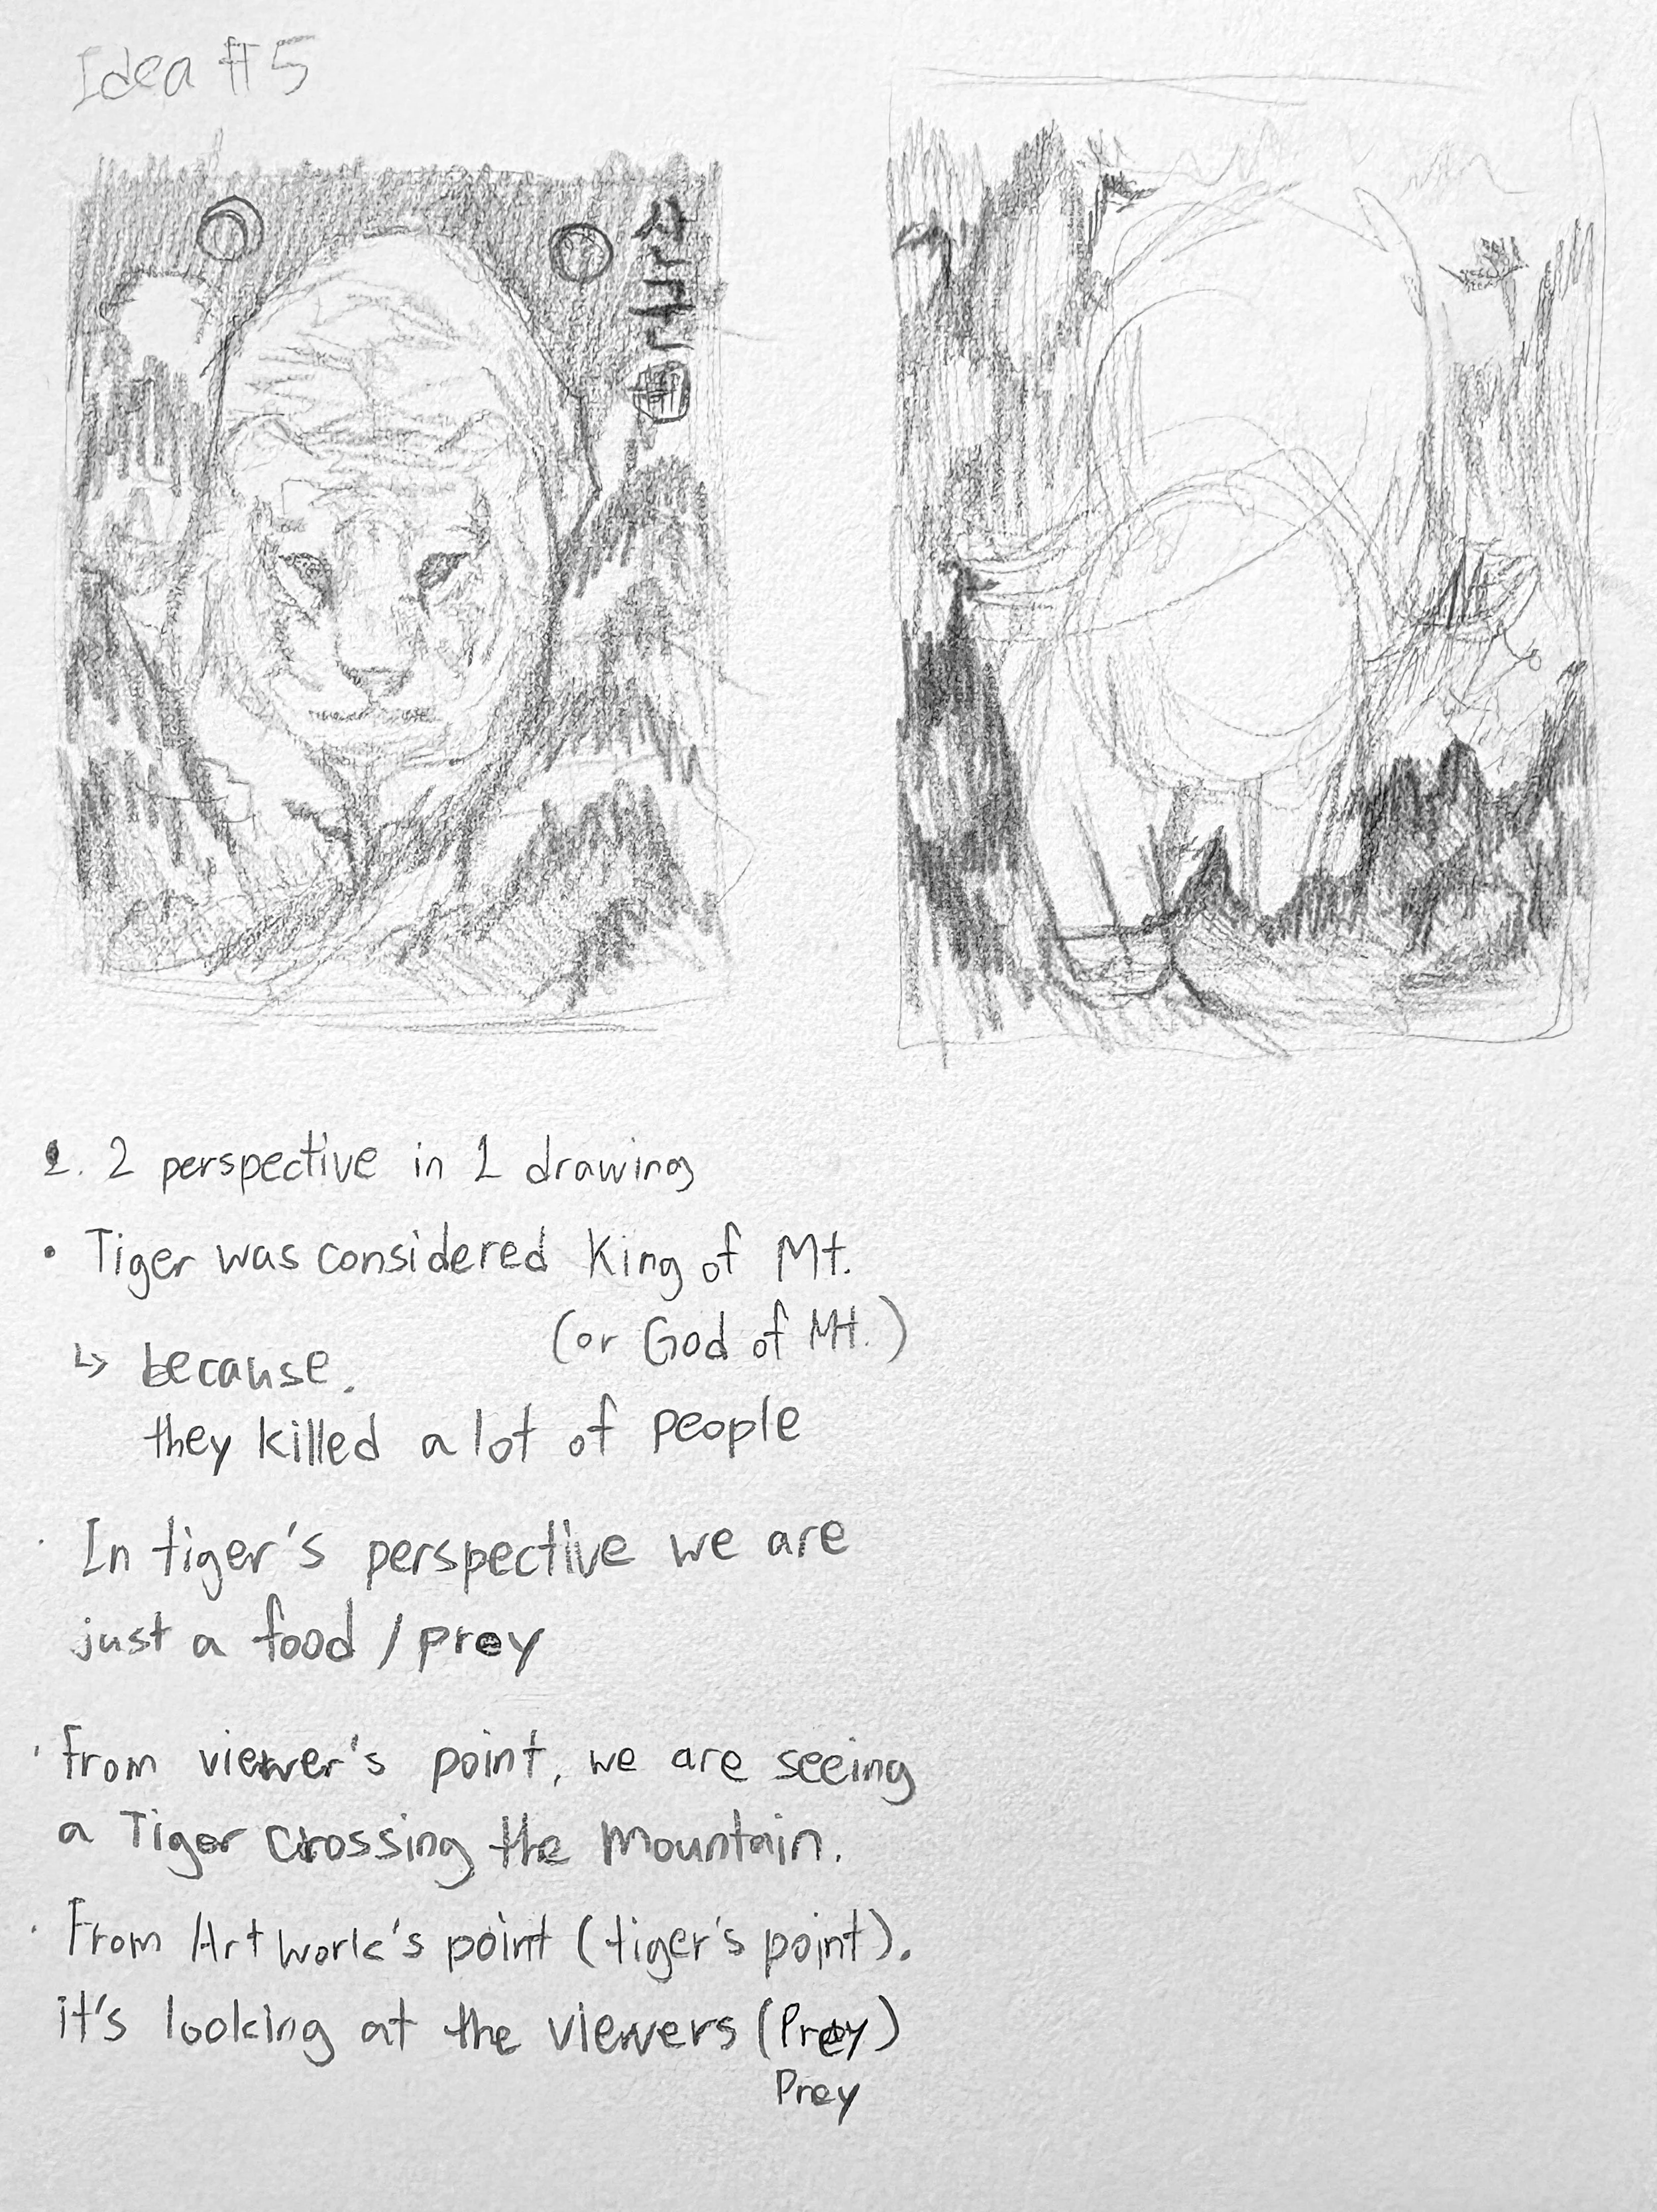 Idea #5
산군
1. 2 perspective in 1 drawing
• Tiger was considered King of Mt.
(or God of Mt.)
↳ because.
they killed a lot of people
· In tiger's perspective we are
just a food / prey
· from viewer's point, we are seeing
a Tiger crossing the mountain.
· From Artwork's point (tiger's point).
it's looking at the viewers (Prey)
Prey